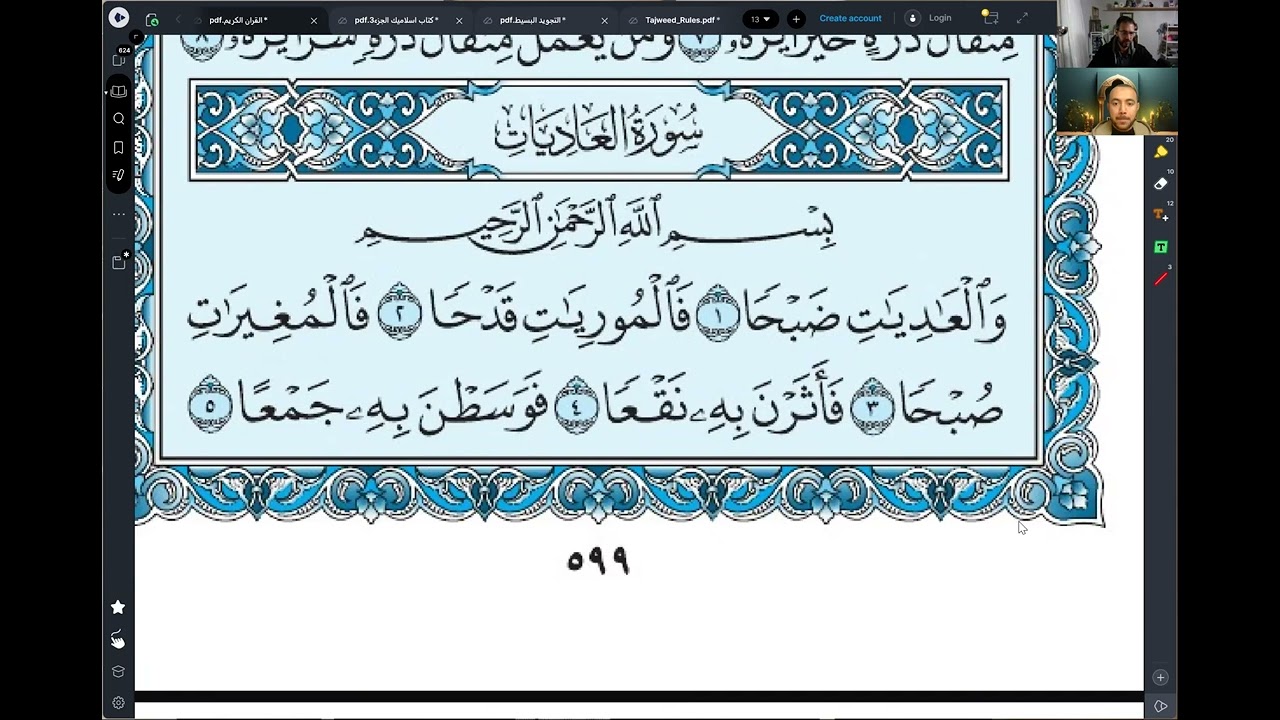 القرآن الكريم.pdf *
كتاب اسلاميك الجزء3.pdf *
التجويد البسيط.pdf *
Tajweed_Rules.pdf *
13
Create account
Login
624
مِثْقَالَ ذَرَّةٍ خَيْرًا يَرَهُۥ ٧ وَمَن يَعْمَلْ مِثْقَالَ ذَرَّةٍ شَرًّا يَرَهُۥ ٨
سُورَةُ العَادِيَاتِ
بِسْمِ ٱللَّهِ ٱلرَّحْمَٰنِ ٱلرَّحِيمِ
وَٱلْعَٰدِيَٰتِ ضَبْحًا ١ فَٱلْمُورِيَٰتِ قَدْحًا ٢ فَٱلْمُغِيرَٰتِ
صُبْحًا ٣ فَأَثَرْنَ بِهِۦ نَقْعًا ٤ فَوَسَطْنَ بِهِۦ جَمْعًا ٥
٥٩٩
20
10
12
T
3